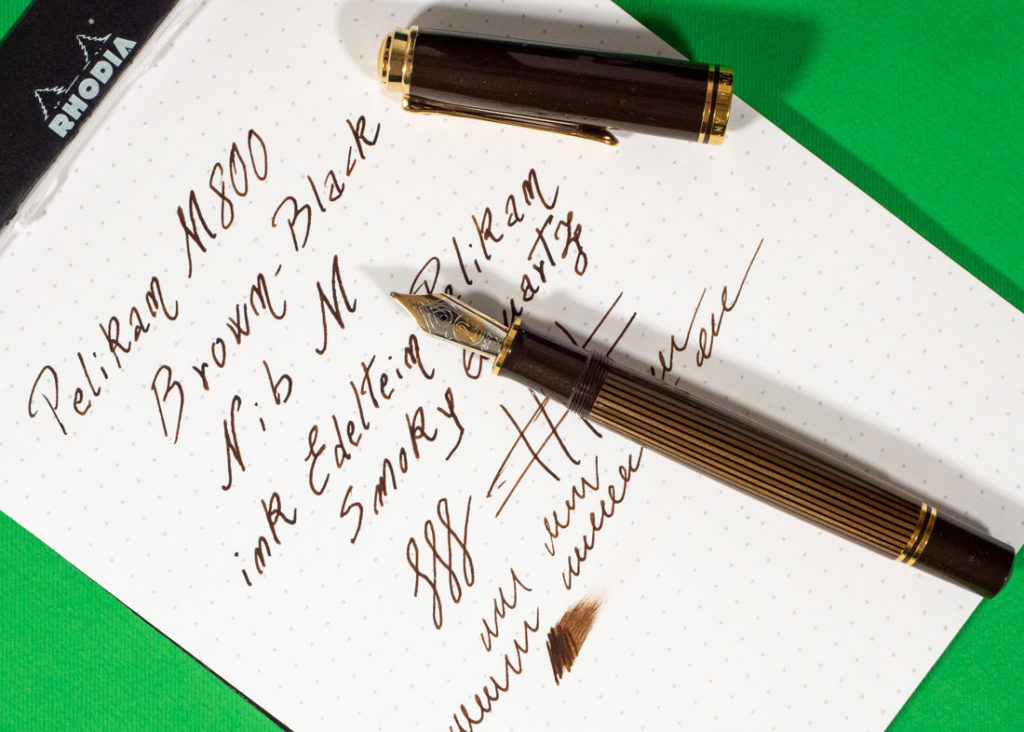 RHODIA
Pelikan M800
Brown-Black
Nib M
ink Edelstein Pelikan
Smoky Quartz